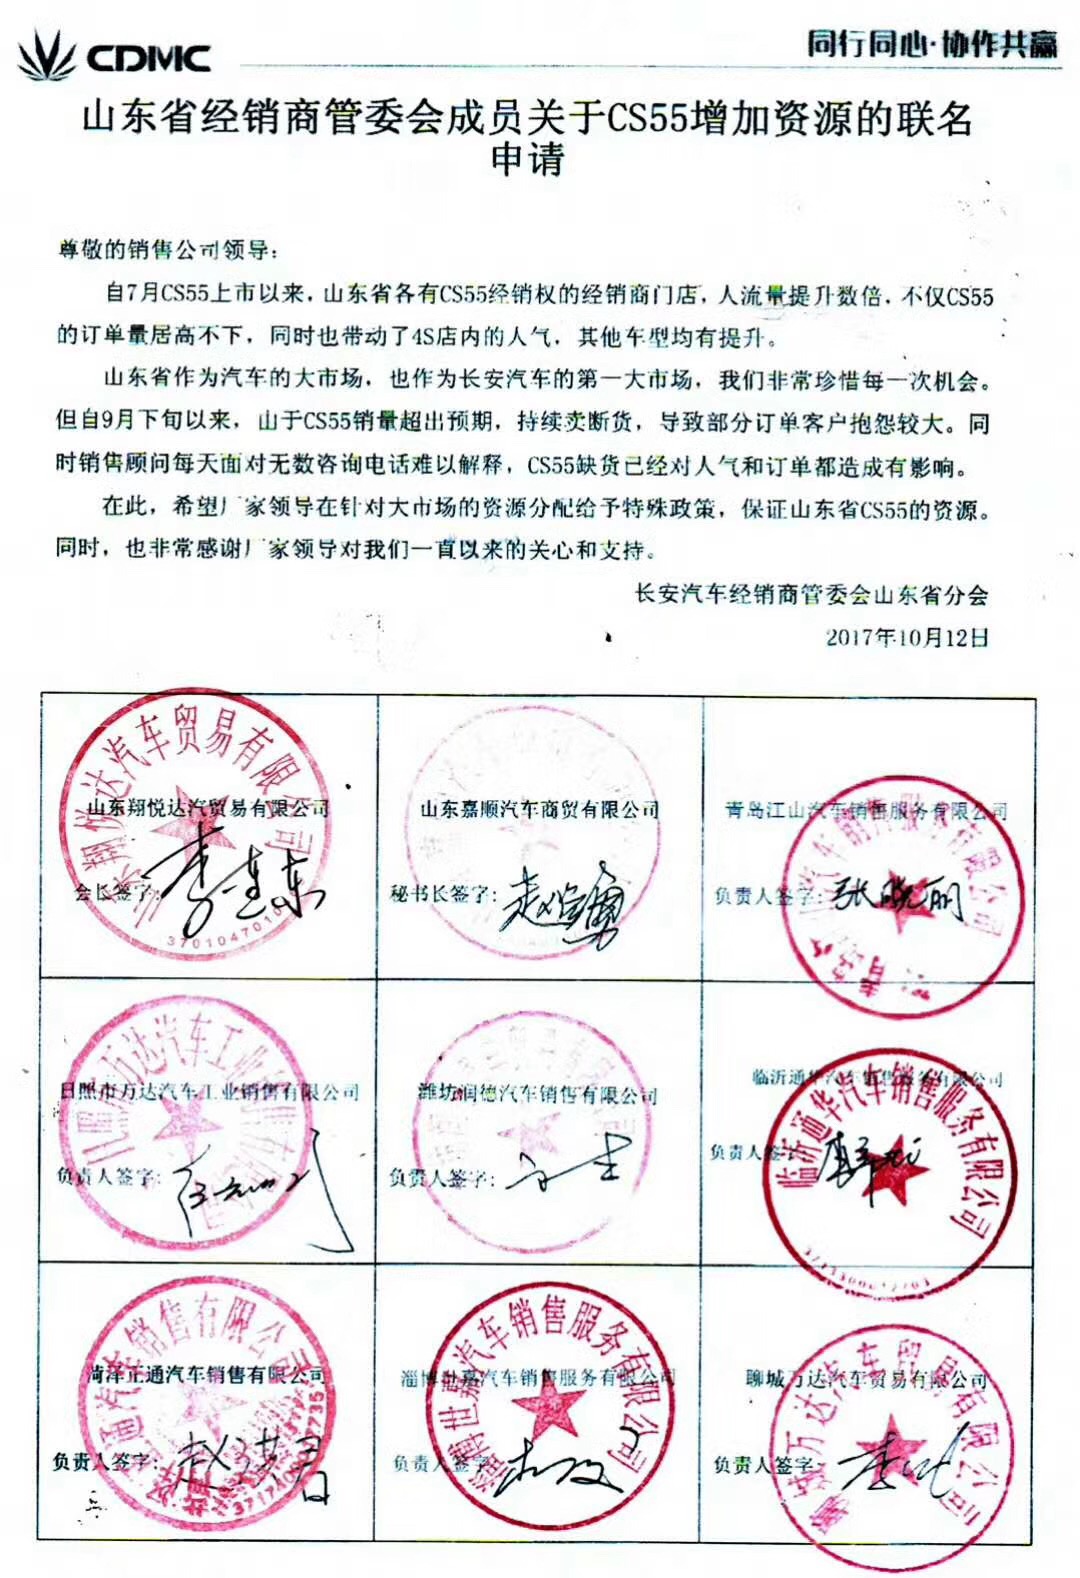 CDMC
同行同心·协作共赢
山东省经销商管委会成员关于CS55增加资源的联名
申请
尊敬的销售公司领导：
自7月CS55上市以来，山东省各有CS55经销权的经销商门店，人流量提升数倍，不仅CS55
的订单量居高不下，同时也带动了4S店内的人气，其他车型均有提升。
山东省作为汽车的大市场，也作为长安汽车的第一大市场，我们非常珍惜每一次机会。
但自9月下旬以来，由于CS55销量超出预期，持续卖断货，导致部分订单客户抱怨较大。同
时销售顾问每天面对无数咨询电话难以解释，CS55缺货已经对人气和订单都造成有影响。
在此，希望厂家领导在针对大市场的资源分配给予特殊政策，保证山东省CS55的资源。
同时，也非常感谢厂家领导对我们一直以来的关心和支持。
长安汽车经销商管委会山东省分会
2017年10月12日
山东翔悦达汽贸易有限公司
会长签字：李连东
山东嘉顺汽车商贸有限公司
秘书长签字：
青岛江山汽车销售服务有限公司
负责人签字：张晓丽
日照市万达汽车工业销售有限公司
负责人签字：
潍坊润德汽车销售有限公司
负责人签字：
临沂通华汽车销售服务有限公司
负责人签字：
菏泽正通汽车销售有限公司
负责人签字：赵洪君
淄博世嘉汽车销售服务有限公司
负责人签字：
聊城万达汽车贸易有限公司
负责人签字：
翔悦达汽车贸易有限公司
3701047010
临沂通华汽车销售服务有限公司
淄博世嘉汽车销售服务有限公司
聊城万达汽车贸易有限公司